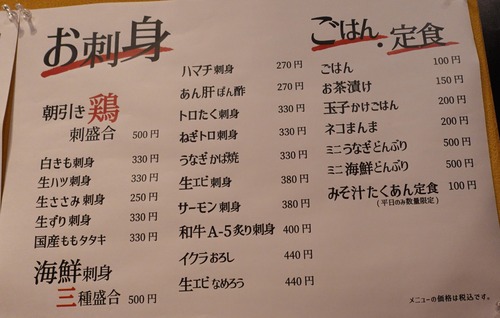 お刺身
朝引き鶏
刺盛合 500円
白きも刺身 330円
生ハツ刺身 330円
生ささみ刺身 250円
生ずり刺身 330円
国産ももタタキ 330円
海鮮刺身
三種盛合 500円
ハマチ刺身 270円
あん肝ぽん酢 270円
トロたく刺身 330円
ねぎトロ刺身 330円
うなぎかば焼 330円
生エビ刺身 380円
サーモン刺身 380円
和牛A-5炙り刺身 400円
イクラおろし 440円
生エビなめろう 440円
ごはん・定食
ごはん 100円
お茶漬け 150円
玉子かけごはん 200円
ネコまんま 200円
ミニうなぎどんぶり 500円
ミニ海鮮どんぶり 500円
みそ汁たくあん定食 100円
(平日のみ数量限定)
メニューの価格は税込です。